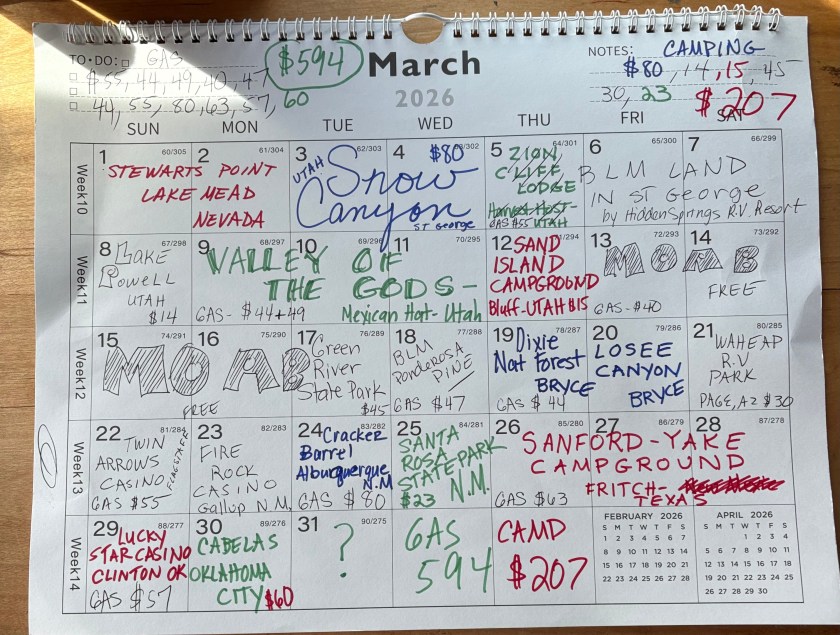 TO•DO: GAS
$55, 44, 49, 40, 47
44, 55, 80, 63, 57, 60
$594
March
2026
NOTES: CAMPING
$80, 14, 15, 45
30, 23
$207
SUN MON TUE WED THU FRI SAT
Week10
1 60/305
2 61/304
STEWARTS POINT
LAKE MEAD
NEVADA
3 62/303
4 63/302
$80
UTAH
Snow
Canyon
ST George
5 64/301
ZION
CLIFF
LODGE
Harvest Host-
GAS $55 UTAH
6 65/300
7 66/299
BLM LAND
IN ST George
by Hidden Springs R.V. Resort
Week11
8 67/298
LAKE
POWELL
UTAH
$14
9 68/297
10 69/296
11 70/295
VALLEY OF
THE GODS-
GAS- $44+49
Mexican Hat- Utah
12 71/294
SAND
ISLAND
CAMPGROUND
Bluff-UTAH $15
13 72/293
14 73/292
MOAB
GAS- $40
FREE
Week12
15 74/291
16 75/290
MOAB
FREE
17 76/289
Green
River
State Park
$45
18 77/288
BLM
Ponderosa
PINE
GAS $47
19 78/287
Dixie
Nat Forest
BRYCE
GAS $44
20 79/286
LOSEE
CANYON
BRYCE
21 80/285
WAHEAP
R.V
PARK
PAGE, AZ $30
Week13
22 81/284
TWIN
ARROWS
CASINO
FLAGSTAFF
GAS $55
23 82/283
FIRE
ROCK
CASINO
Gallup N.M.
24 83/282
Cracker
Barrel
Albuquerque
N.M
GAS $80
25 84/281
SANTA
ROSA
STATE PARK
$23 N.M.
26 85/280
27 86/279
28 87/278
SANFORD-YAKE
CAMPGROUND
FRITCH-
TEXAS
GAS $63
Week14
29 88/277
LUCKY
STAR CASINO
CLINTON OK
GAS $57
30 89/276
CABELAS
OKLAHOMA
CITY $60
31 90/275
?
GAS
594
CAMP
$207
FEBRUARY 2026
S M T W T F S
1 2 3 4 5 6 7
8 9 10 11 12 13 14
15 16 17 18 19 20 21
22 23 24 25 26 27 28
APRIL 2026
S M T W T F S
1 2 3 4
5 6 7 8 9 10 11
12 13 14 15 16 17 18
19 20 21 22 23 24 25
26 27 28 29 30